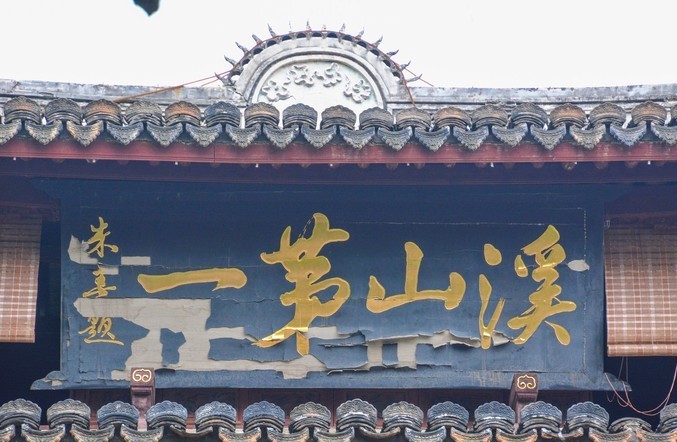 溪山第一
朱熹題